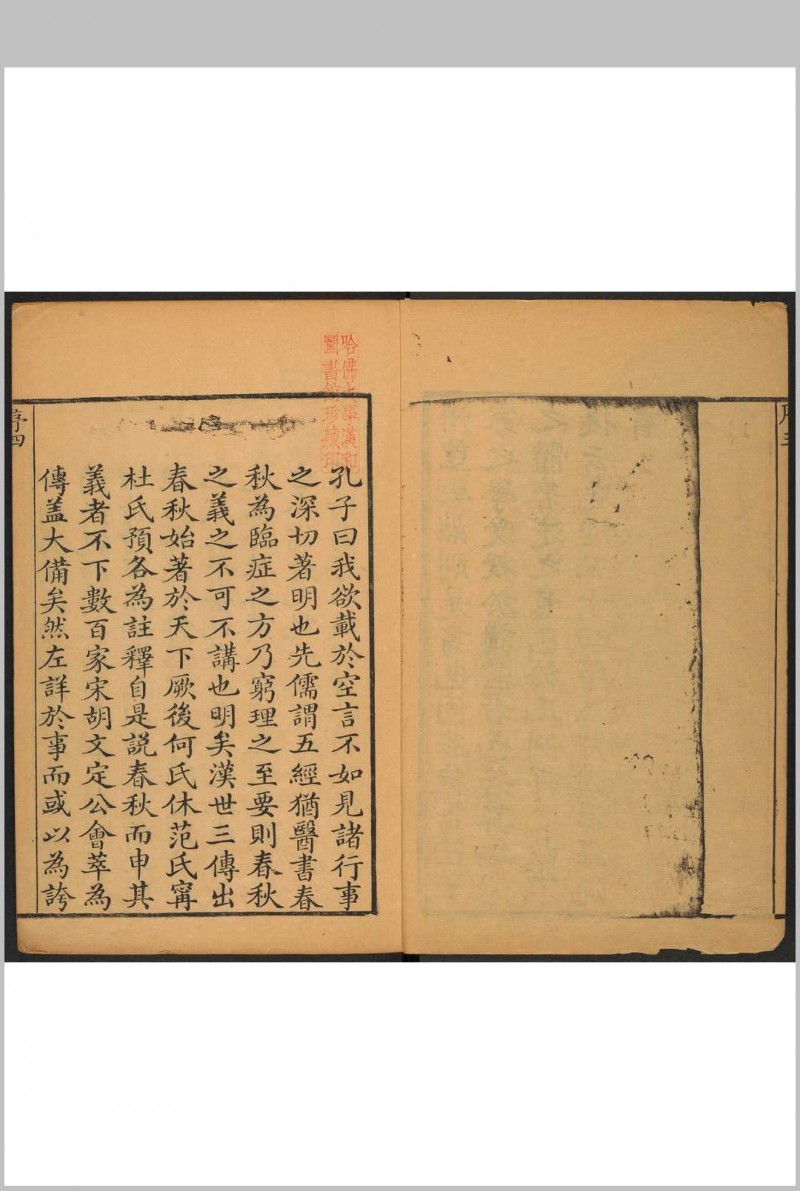 孔子曰我欲載於空言不如見諸行事
之深切著明也先儒謂五經猶醫書春
秋為臨症之方乃窮理之至要則春秋
之義之不可不講也明矣漢世三傳出
春秋始著於天下厥後何氏休范氏甯
杜氏預各為註釋自是說春秋而申其
義者不下數百家宋胡文定公會萃為
傳盖大備矣然左詳於事而或以為誇
序四
哈佛大學漢和
圖書館珍藏印